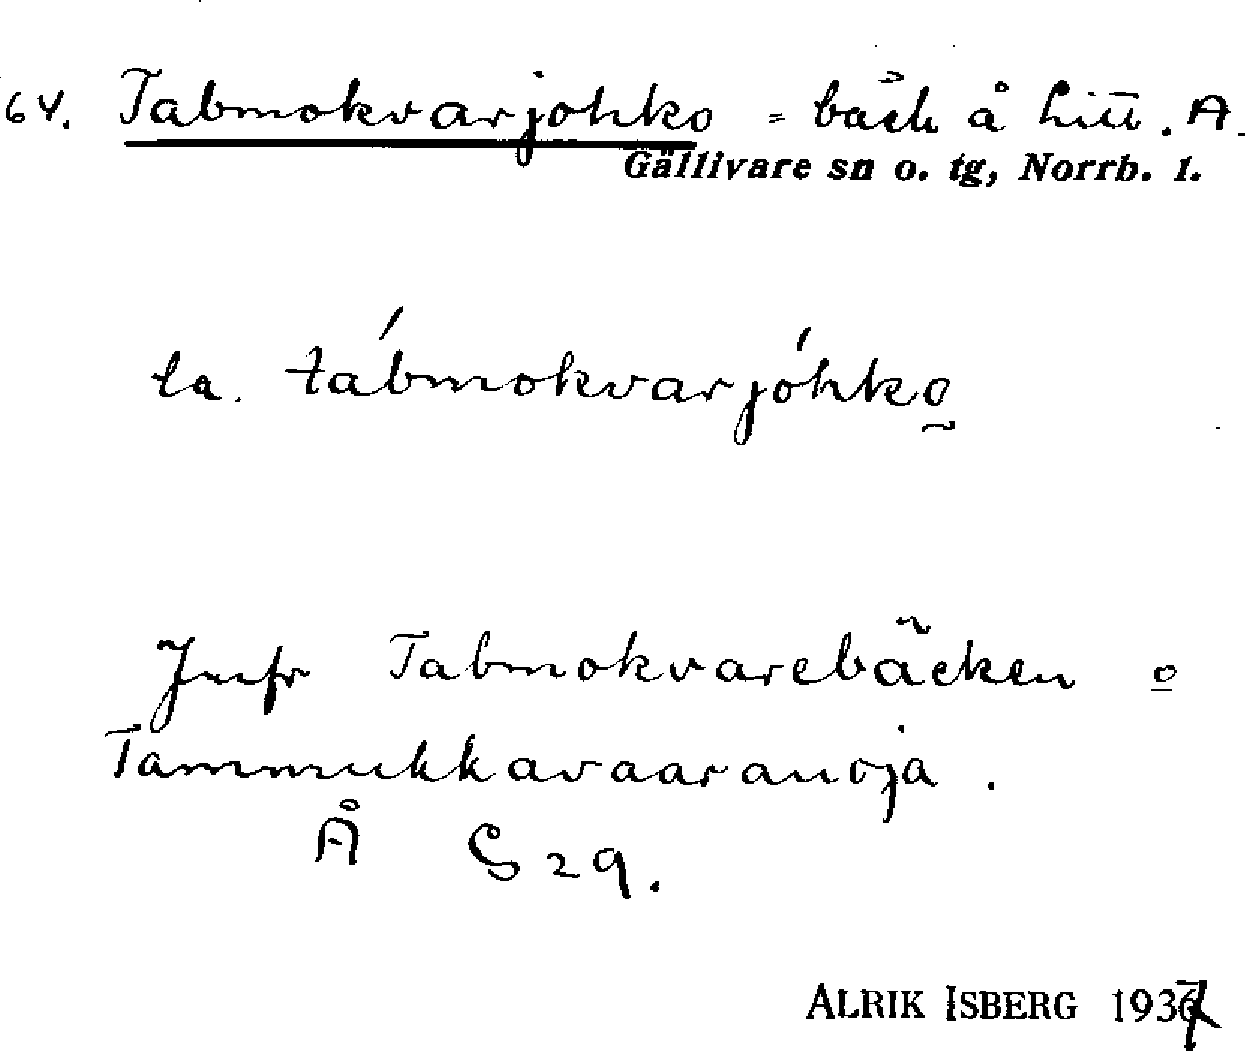 64. Tabmokvarjohko = bäck å Litt. A.
Gällivare sn o. tg, Norrb. l.
la. tábmokvarjóhko̰
Jmfr Tabmokvarebäcken o
Tammukkavaaranoja.
Å S 29.
ALRIK ISBERG 1937